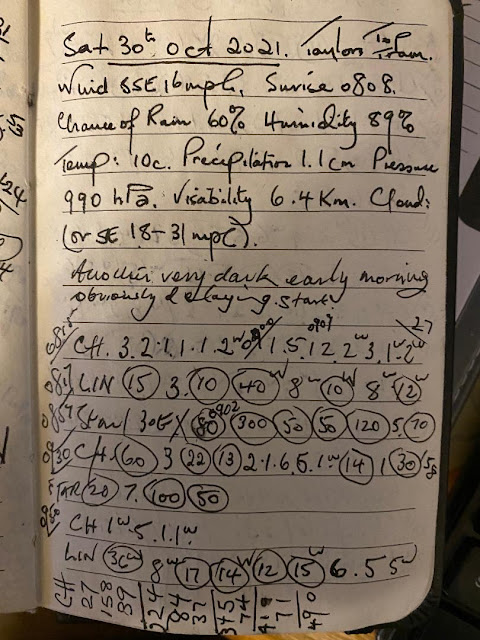 Sat 30th Oct 2021. Taylors
Wind SSE 16 mph, Sunrise 0808.
Chance of Rain 60% Humidity 89%
Temp: 10c. Precipitation 1.1cm Pressure
990 hPa. Visability 6.4 Km. Cloud:
(or SE 18-31 mph).
Another very dark early morning
obviously delaying start
CH. 3. 2. 1. 1. 1. 2w 1. 5. 12. 2w 3. 1. 2w 27
LIN 15 3. 70 40w 8w 10w 8w 12w
0902 80 300 50 50 120 5. 70
0930 CH. 60 3 22 13 2. 1. 6. 5. 1.w 14 1 30 58
STAR 20 7. 100 50
0950 CH 1w. 5. 1. 1w
LIN 30w 8w 17 14w 12 15w 6. 5 5w
CH
27
158
39
224
84
37
345
74
419
71
490